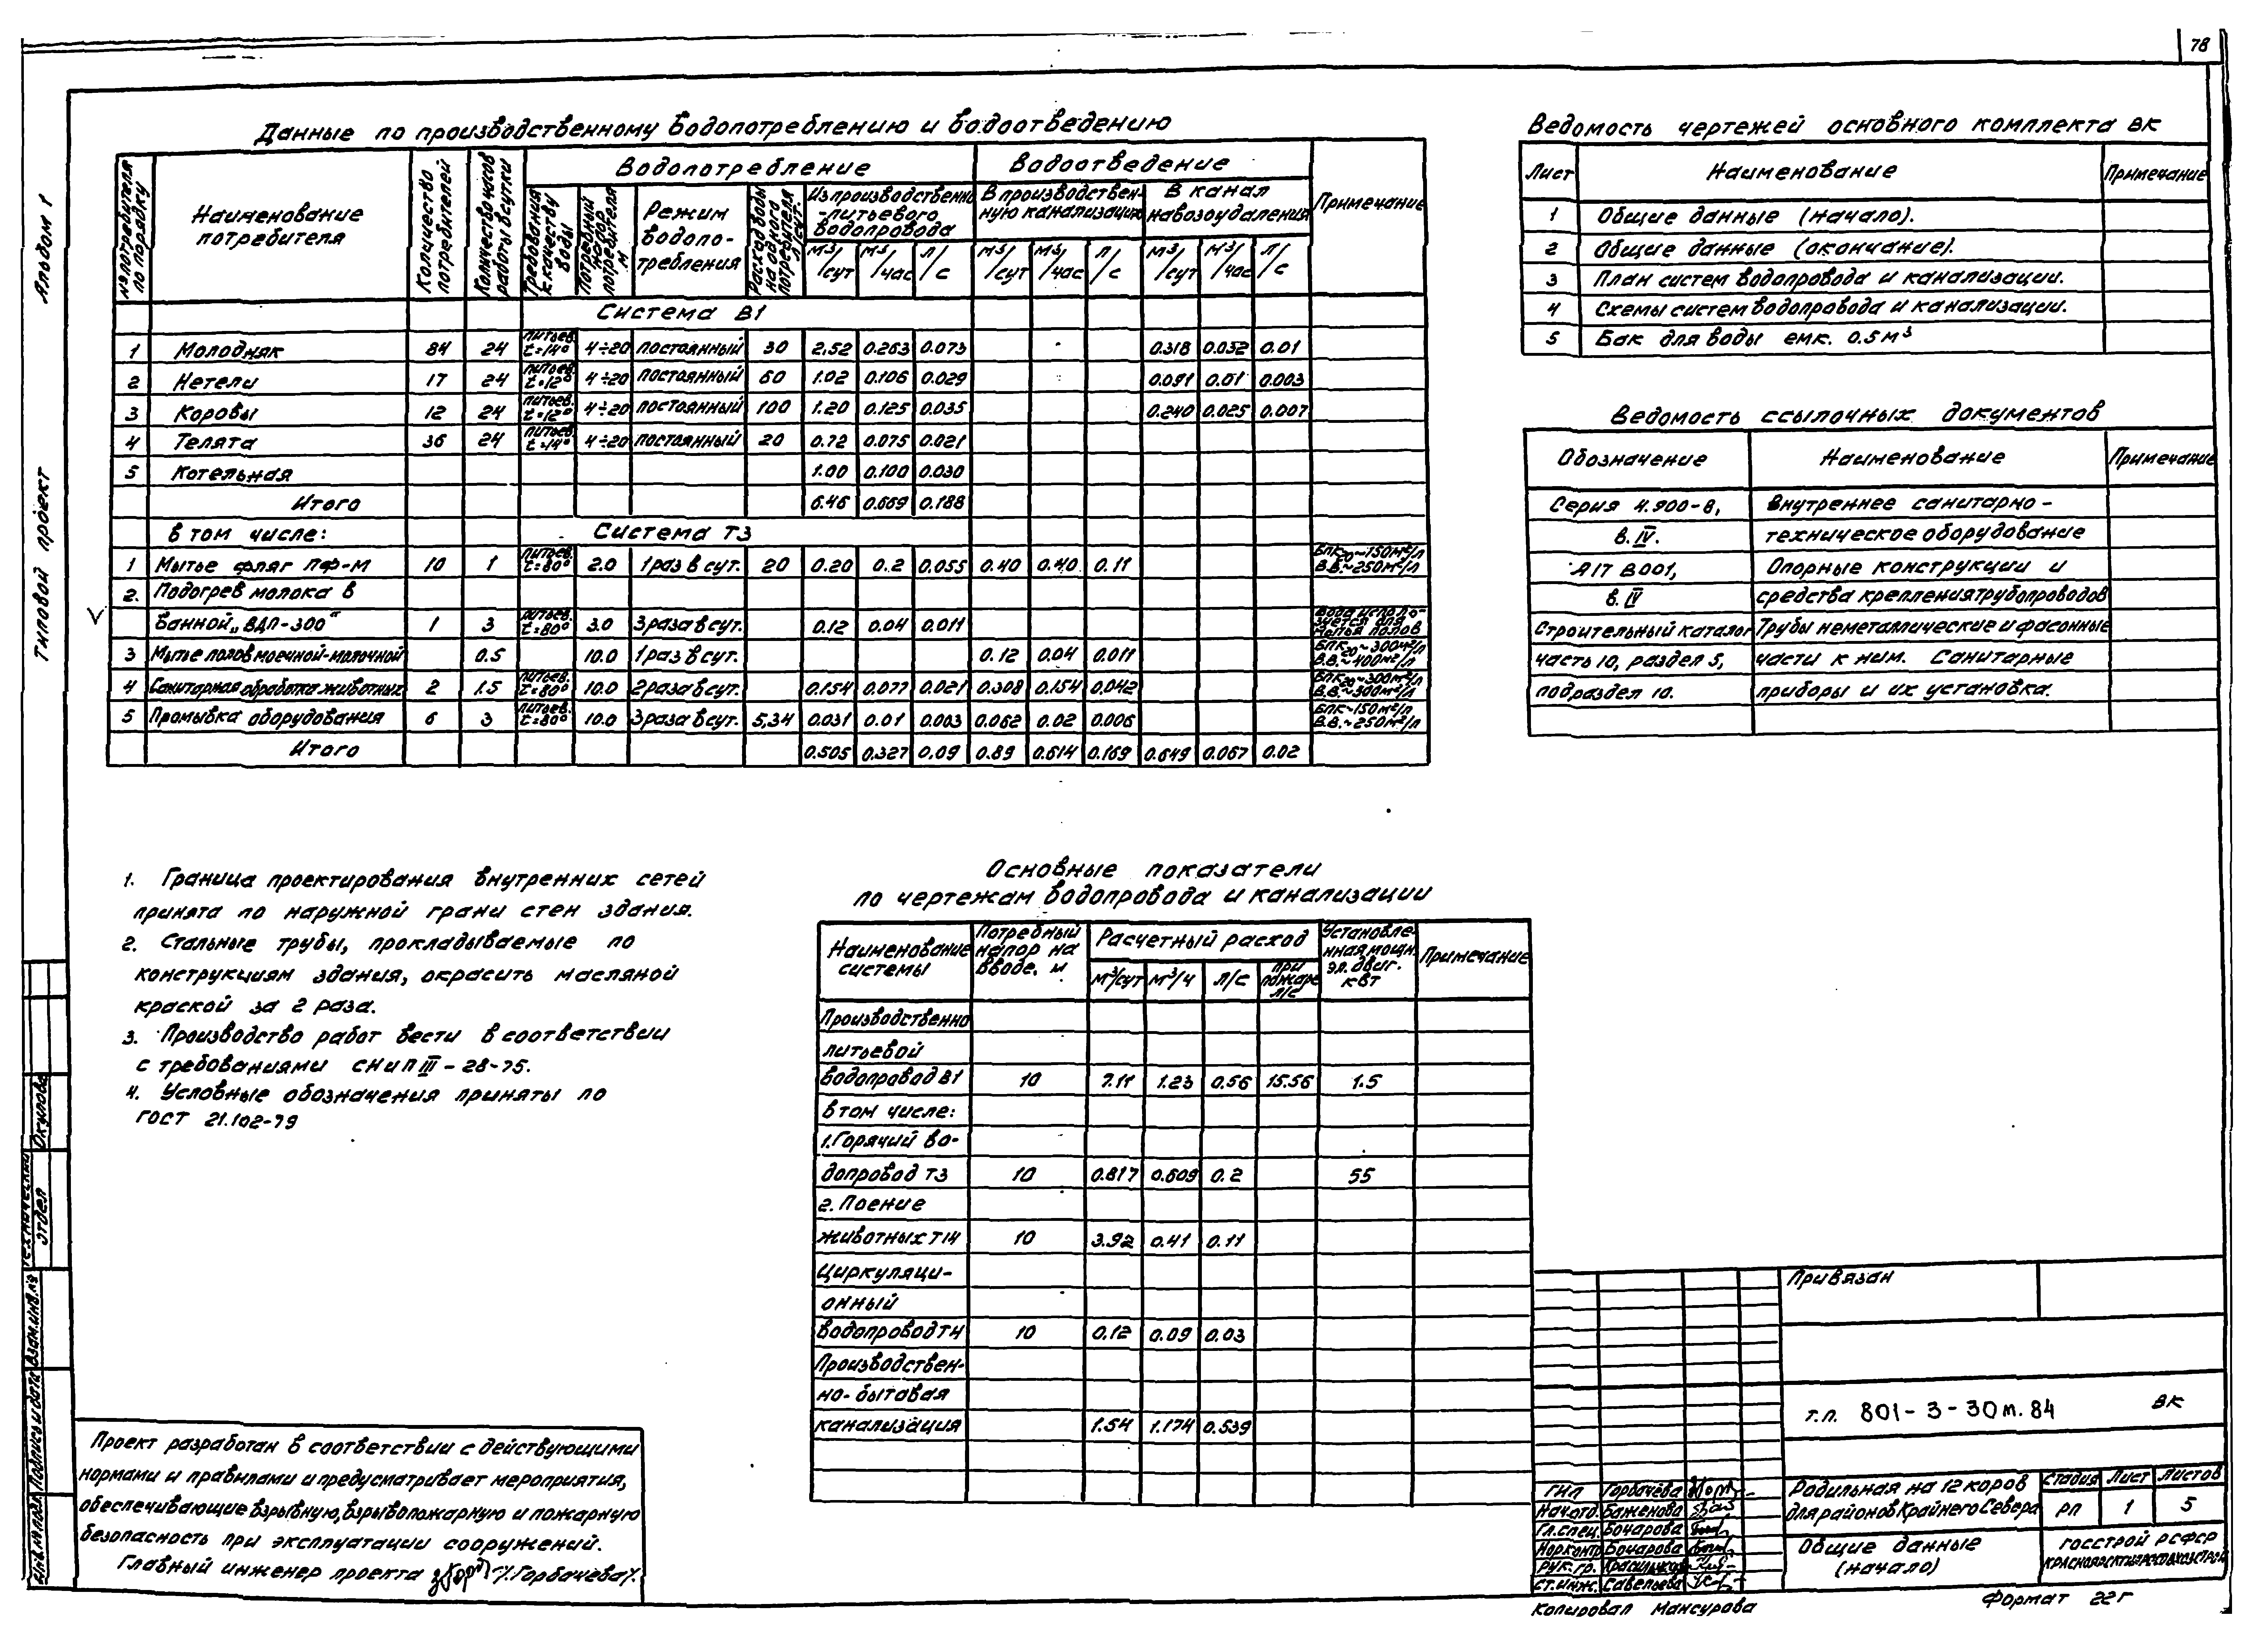 78
Альбом 1
Типовой проект
Данные по производственному водопотреблению и водоотведению
№ потребителя по порядку | Наименование потребителя | Количество потребителей | Количество часов работы в сутки | Водопотребление | Водоотведение | Примечание
Требования к качеству воды | Потребный напор потребителя м | Режим водопотребления | Расход воды на одного потребителя л/сут | Из производственно-питьевого водопровода | В производственную канализацию | В канал навозоудаления
м³/сут | м³/час | л/с | м³/сут | м³/час | л/с | м³/сут | м³/час | л/с
Система В1
1 Молодняк 84 24 питьев. t=14° 4÷20 постоянный 30 2.52 0.263 0.073 0.318 0.032 0.01
2 Нетели 17 24 питьев. t=12° 4÷20 постоянный 60 1.02 0.106 0.029 0.091 0.01 0.003
3 Коровы 12 24 питьев. t=12° 4÷20 постоянный 100 1.20 0.125 0.035 0.240 0.025 0.007
4 Телята 36 24 питьев. t=14° 4÷20 постоянный 20 0.72 0.075 0.021
5 Котельная 1.00 0.100 0.030
Итого 6.46 0.669 0.188
в том числе: Система Т3
1 Мытье фляг ПФ-М 10 1 питьев. t=80° 2.0 1 раз в сут. 20 0.20 0.2 0.055 0.40 0.40 0.11 БПК20~150м²/л В.В.~250м²/л
2. Подогрев молока в
ванной „ВДП-300" 1 3 питьев. t=80° 3.0 3 раза в сут. 0.12 0.04 0.011 Вода используется для мытья полов
3 Мытье полов моечной-молочной 0.5 10.0 1 раз в сут. 0.12 0.04 0.011 БПК20~300м²/л В.В.~400м²/л
4 Санитарная обработка животных 2 1.5 питьев. t=80° 10.0 2 раза в сут. 0.154 0.077 0.021 0.308 0.154 0.042 БПК20~300м²/л В.В.~300м²/л
5 Промывка оборудования 6 3 питьев. t=80° 10.0 3 раза в сут. 5,34 0.031 0.01 0.003 0.062 0.02 0.006 БПК~150м²/л В.В.~250м²/л
Итого 0.505 0.327 0.09 0.89 0.614 0.169 0.649 0.067 0.02
Ведомость чертежей основного комплекта ВК
Лист | Наименование | Примечание
1 Общие данные (начало).
2 Общие данные (окончание).
3 План систем водопровода и канализации.
4 Схемы систем водопровода и канализации.
5 Бак для воды емк. 0.5м³
Ведомость ссылочных документов
Обозначение | Наименование | Примечание
Серия 4.900-8, Внутреннее санитарно-
в. IV. техническое оборудование
А17 В001, Опорные конструкции и
в. IV средства крепления трубопроводов
Строительный каталог Трубы неметаллические и фасонные
часть 10, раздел 5, части к ним. Санитарные
подраздел 10. приборы и их установка.
1. Граница проектирования внутренних сетей
принята по наружной грани стен здания.
2. Стальные трубы, прокладываемые по
конструкциям здания, окрасить масляной
краской за 2 раза.
3. Производство работ вести в соответствии
с требованиями СНиП III-28-75.
4. Условные обозначения приняты по
ГОСТ 21.102-79
Основные показатели
по чертежам водопровода и канализации
Наименование системы | Потребный напор на вводе, м | Расчетный расход | Установленная мощн. эл. двиг. квт | Примечание
м³/сут | м³/ч | л/с | при пожаре л/с
Производственно
питьевой
водопровод В1 10 7.11 1.23 0.56 15.56 1.5
в том числе:
1. Горячий во-
допровод Т3 10 0.817 0.609 0.2 55
2. Поение
животных Т14 10 3.92 0.41 0.11
Циркуляци-
онный
водопровод Т4 10 0.12 0.09 0.03
Производствен-
но-бытовая
канализация 1.54 1.174 0.539
Проект разработан в соответствии с действующими
нормами и правилами и предусматривает мероприятия,
обеспечивающие взрывную, взрывопожарную и пожарную
безопасность при эксплуатации сооружений.
Главный инженер проекта /Горбачева/.
Привязан
т.п. 801-3-30м.84 ВК
ГИП Горбачёва
Нач.отд. Баженова
Гл.спец. Бочарова
Норм.контр. Бочарова
Рук.гр.
Ст.инж. Савельева
Родильная на 12 коров
для районов Крайнего Севера
Стадия | Лист | Листов
РП 1 5
Общие данные
(начало)
Госстрой РСФСР
Копировал Мансурова
Формат 22г
Технический отдел
Окулова
Взам.инв.№
Подпись и дата
Инв.№ подл.